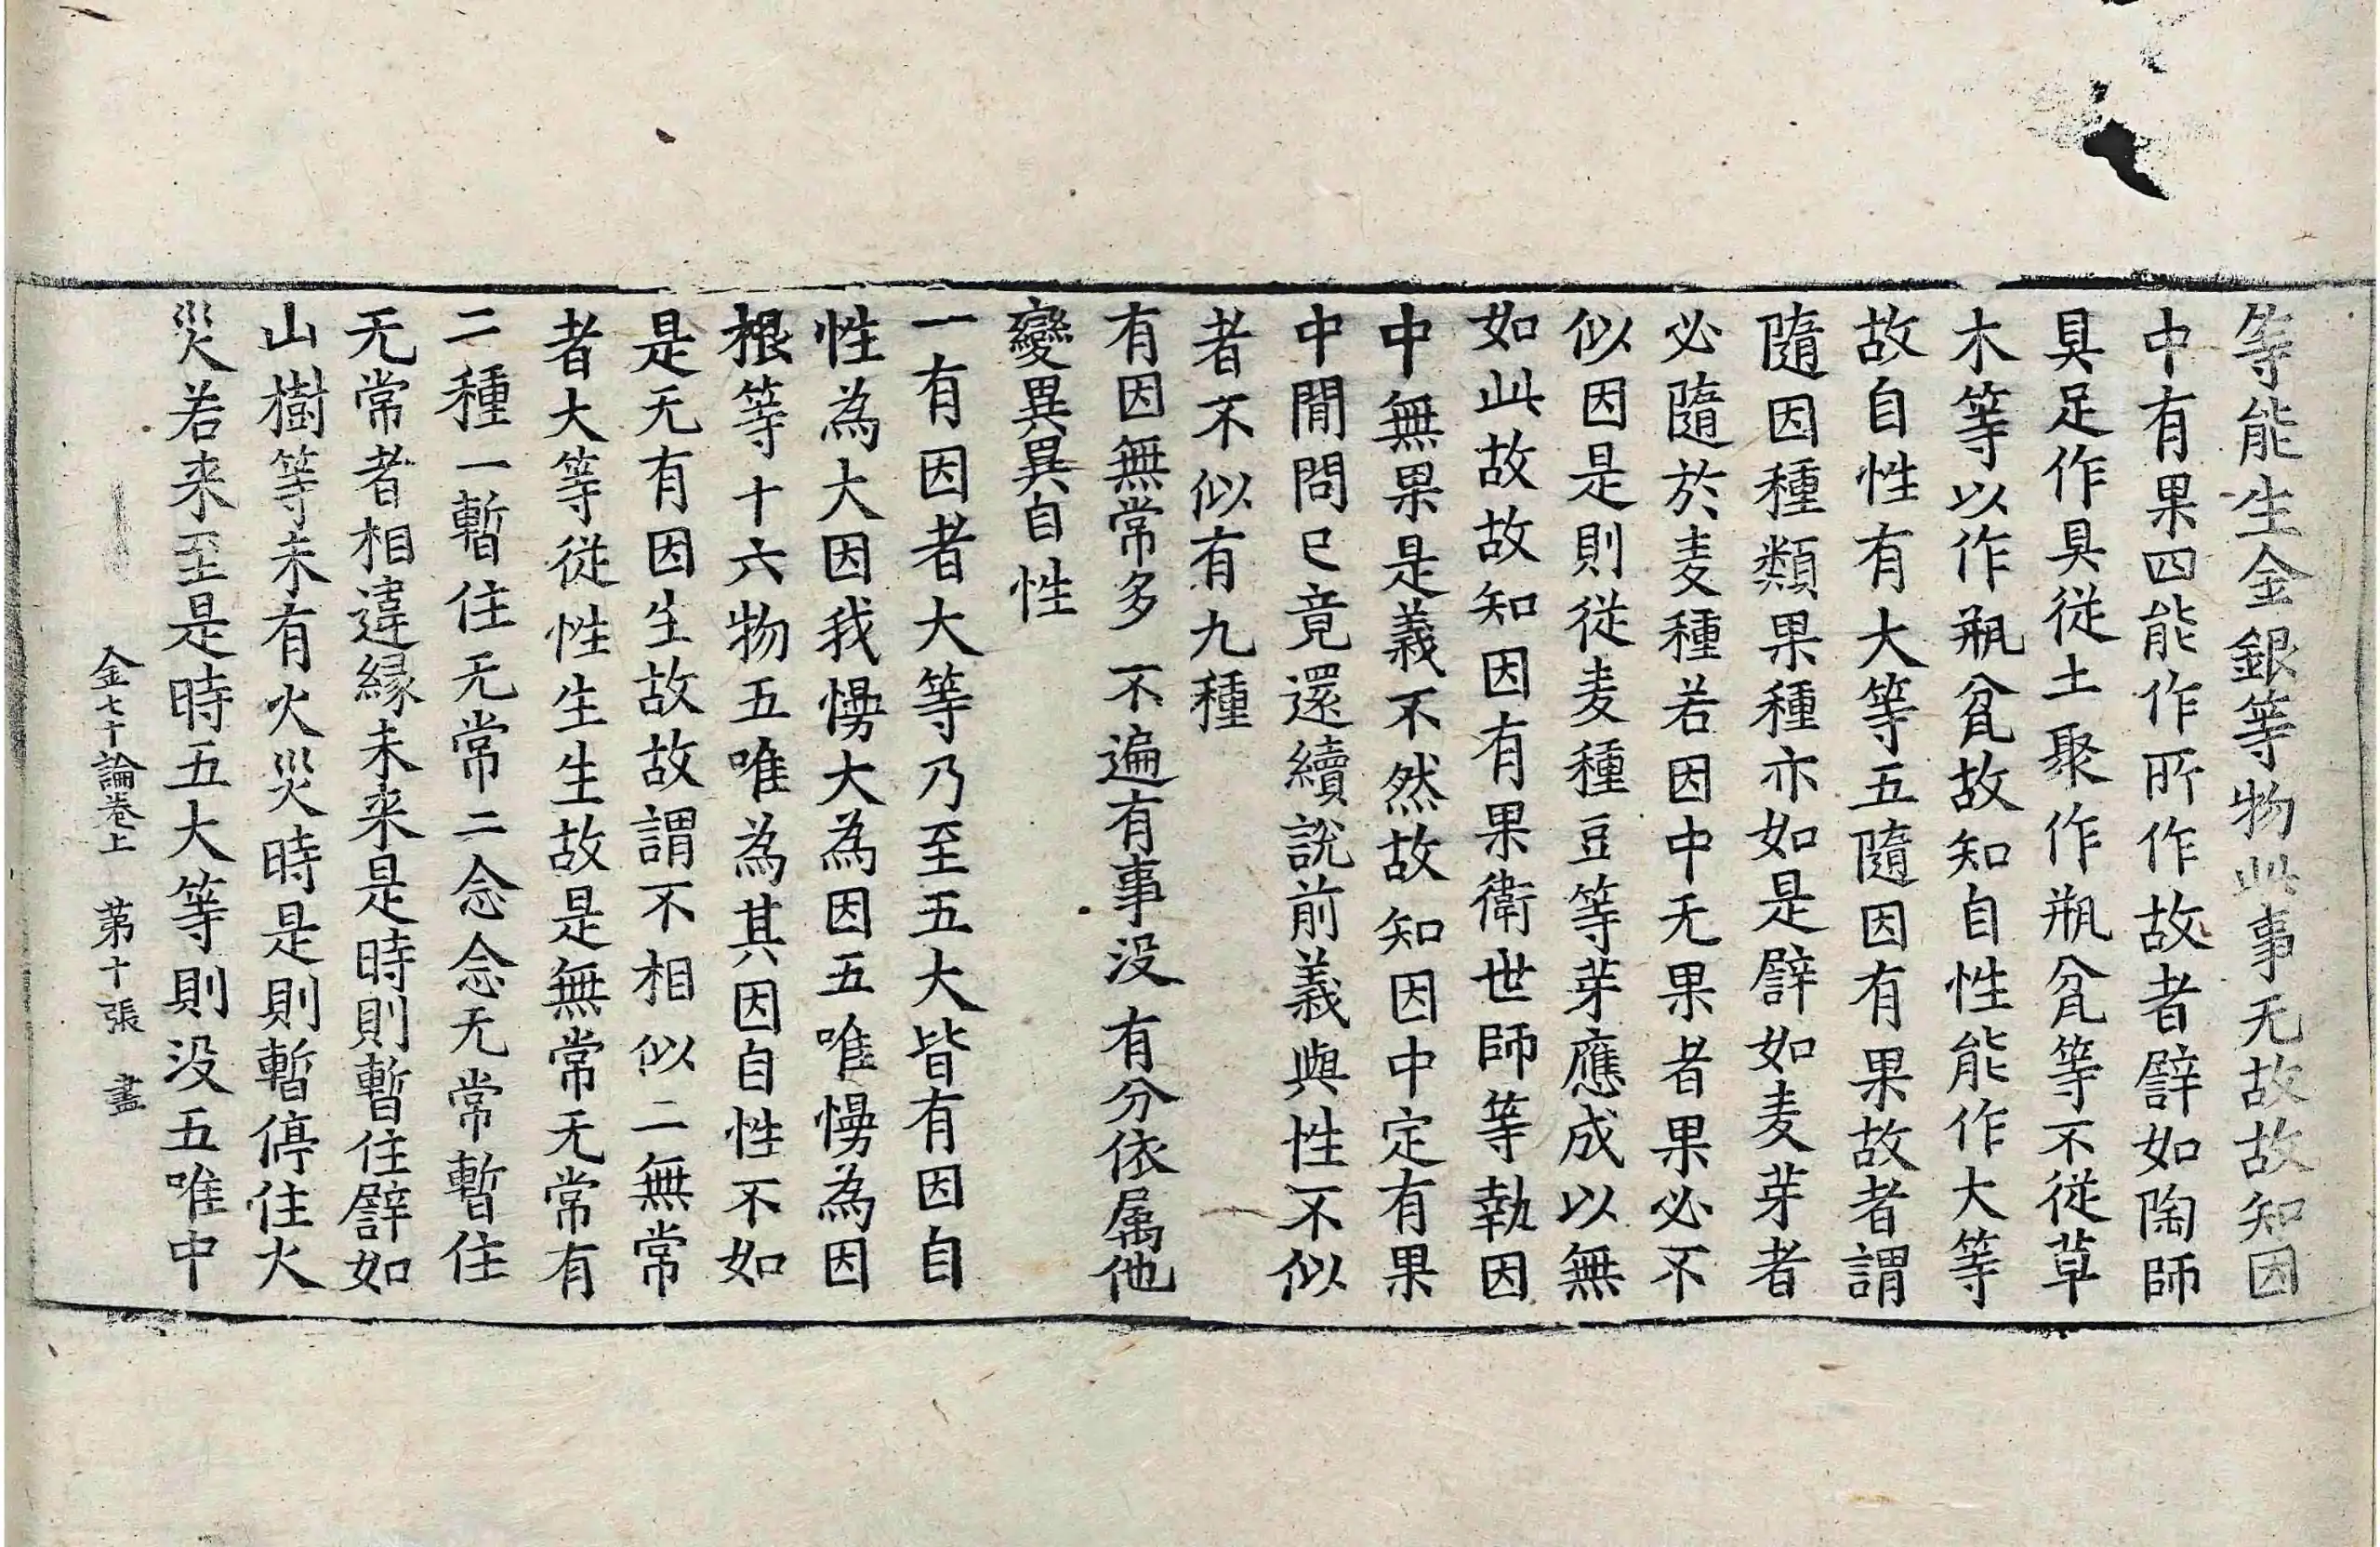 等能生金銀等物此事无故故知因
中有果四能作所作故者譬如陶師
具足作具從土聚作瓶瓫等不從草
木等以作瓶瓫故知自性能作大等
故自性有大等五隨因有果故者謂
隨因種類果種亦如是譬如麦芽者
必隨於麦種若因中无果者果必不
似因是則從麦種豆等芽應成以無
如此故故知因有果衛世師等執因
中無果是義不然故知因中定有果
中間問已竟還續說前義與性不似
者不似有九種
有因無常多 不遍有事没 有分依属他
變異異自性
一有因者大等乃至五大皆有因自
性為大因我慢大為因五唯慢為因
根等十六物五唯為其因自性不如
是无有因生故故謂不相似二無常
者大等從性生生故是無常无常有
二種一暫住无常二念念无常暫住
无常者相違縁未来是時則暫住譬如
山樹等未有火災時是則暫停住火
災若来至是時五大等則没五唯中
金七十論卷上 第十張 盡